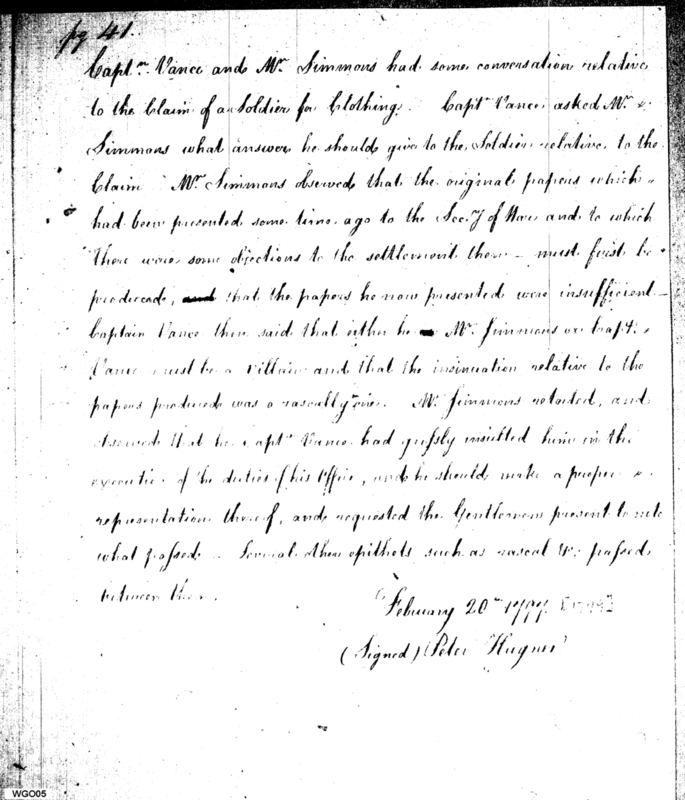 pg 41.
Captn. Vance and Mr. Simmons had some conversation relative
to the Claim of a Soldier for Clothing. Captn. Vance asked Mr.
Simmons what answer he should give to the Soldier relative to the
Claim. Mr. Simmons observed that the original papers which
had been presented some time ago to the Secy of War and to which
there were some directions to the settlement there – must first be
produced, and that the papers he now presented were insufficient –
Captain Vance then said that either he Mr. Simmons or Capt.
Vance must be a Villain and that the insinuation relative to the
papers produced was a rascally one. Mr. Simmons retorted, and
observed that he Captn. Vance had grossly insulted him in the
execution of the duties of his Office, and he should make a proper
representation thereof, and requested the Gentlemen present to note
what passed – Several other epithets such as rascal &c passed
between them.
February 20th 1797. [1798]
(Signed) Peter Hagner
WGO05